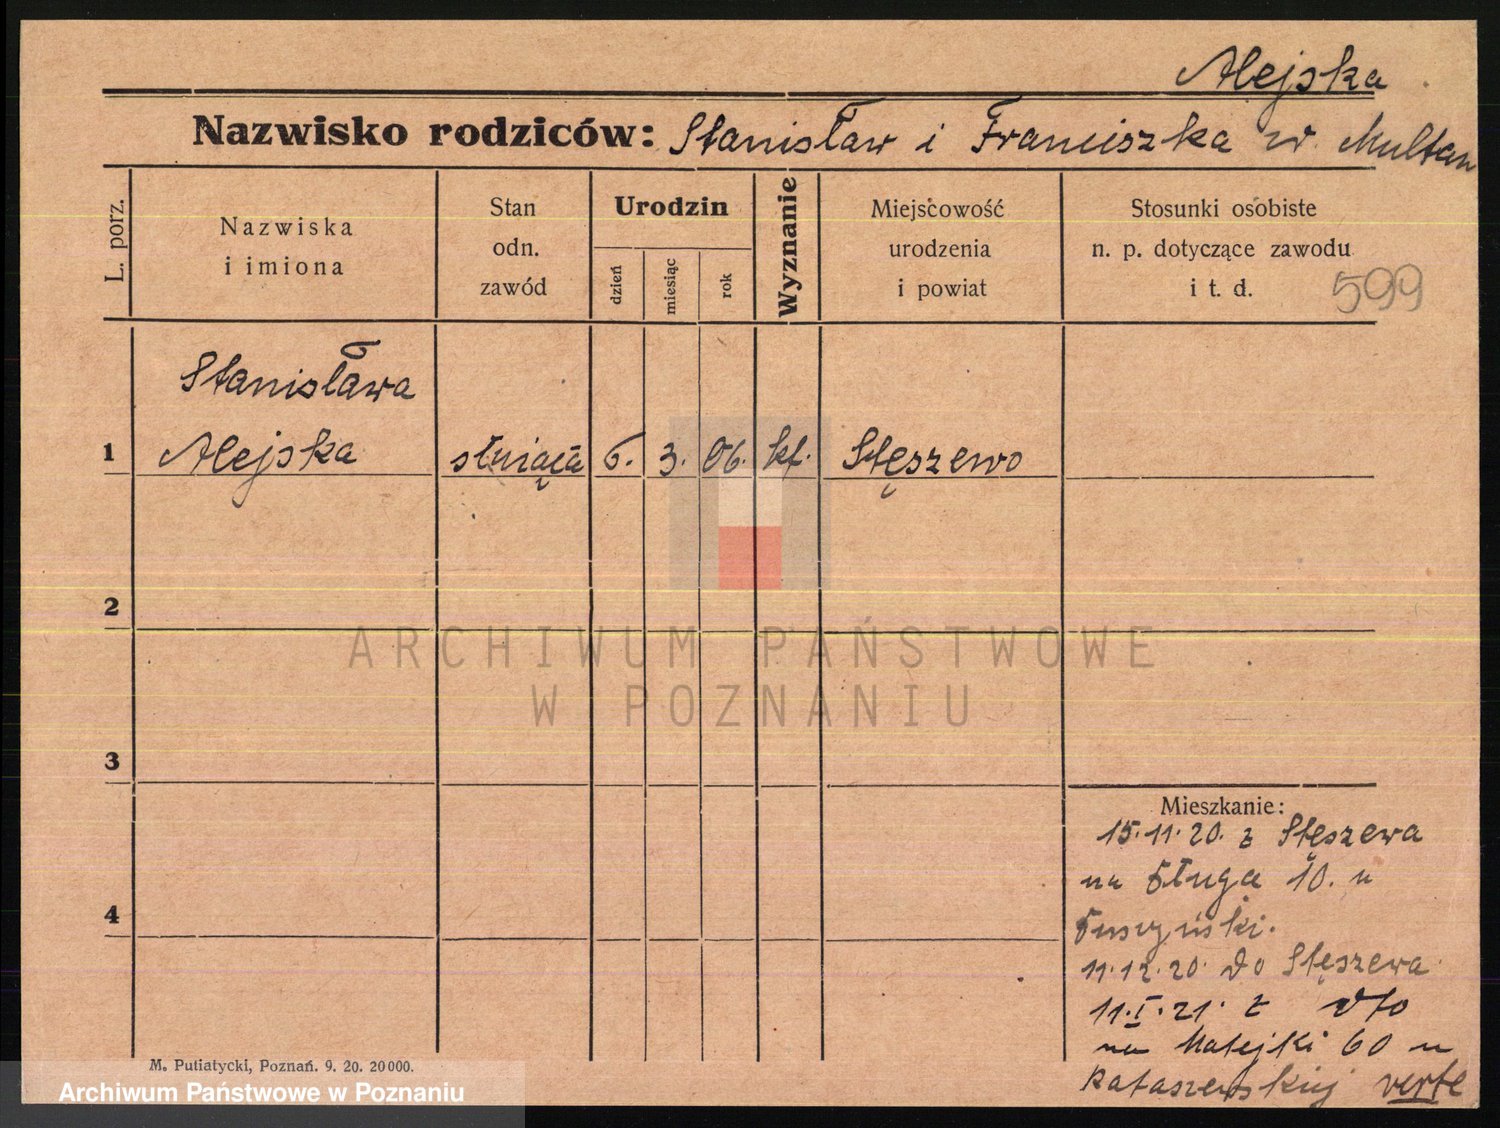 Alejska
Nazwisko rodziców: Stanisław i Franciszka w. Multan
L. porz.
Nazwiska
i imiona
Stan
odn.
zawód
Urodzin
dzień
miesiąc
rok
Wyznanie
Miejscowość
urodzenia
i powiat
Stosunki osobiste
n. p. dotyczące zawodu
i t. d.
599
Stanisława
1 Alejska służąca 6. 3. 06. kt. Stęszewo
2
3
4
Mieszkanie:
15.11.20. z Stęszewa
na Długa 10. u
11.12.20. do Stęszewa
11.I.21. z dto
na Matejki 60 u
verte
M. Putiatycki, Poznań. 9. 20. 20000.
ARCHIWUM PAŃSTWOWE
W POZNANIU
Archiwum Państwowe w Poznaniu